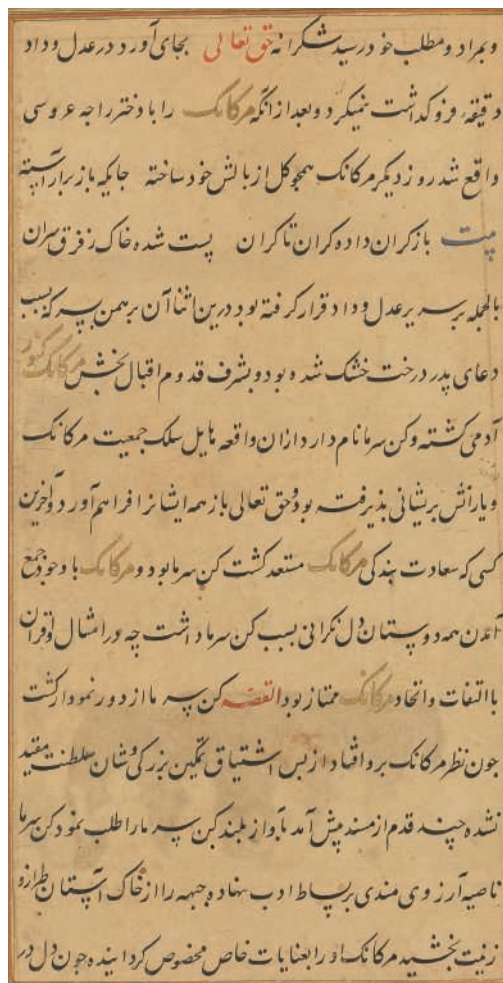 و بمراد و مطلب خود رسید شکرانه حق تعالی بجای آورد در عدل و داد
دقیقه فروکداشت نمیکرد و بعد از انکه مرکانک را با دختر راجه عروسی
واقع شد روز دیکر مرکانک همچو کل از بالش خود ساخته جایکه باز برآراسته
بیت باز کران داده کران تا کران پست شده خاک ز فرق سران
بالجمله بر سریر عدل و داد قرار کرفته بود درین اثنا آن برهمن پسر که بسبب
دعای پدر درخت خشک شده بود و بشرف قدوم اقبال بخش مرکانک کنور
آدمی کشته و کن سرما نام دارد ازان واقعه مایل سلک جمعیت مرکانک
و یارانش پریشانی پذیرفته بود و حق تعالی باز همه ایشانرا فراهم آورد و آخرین
کسی که سعادت بندکی مرکانک مستعد کشت کن سرما بود و مرکانک با وجود جمع
آمدن همه دوستان دل نکرانی بسبب کن سرما داشت چه در امثال و اقران
با التفات و اتحاد مرکانک ممتاز بود القصه کن سرما از دور نمودار کشت
چون نظر مرکانک برو افتاد از بس اشتیاق تمکین بزرکی و شان سلطنت مقید
نشده چند قدم از مسند پیش آمد بآواز بلند کن سرما را طلب نمود کن سرما
ناصیه آرزوی مندی بر بساط ادب نهاده جبهه را از خاک آستان طراز و
زینت بخشید مرکانک او را بعنایات خاص مخصوص کردانیده چون دل در